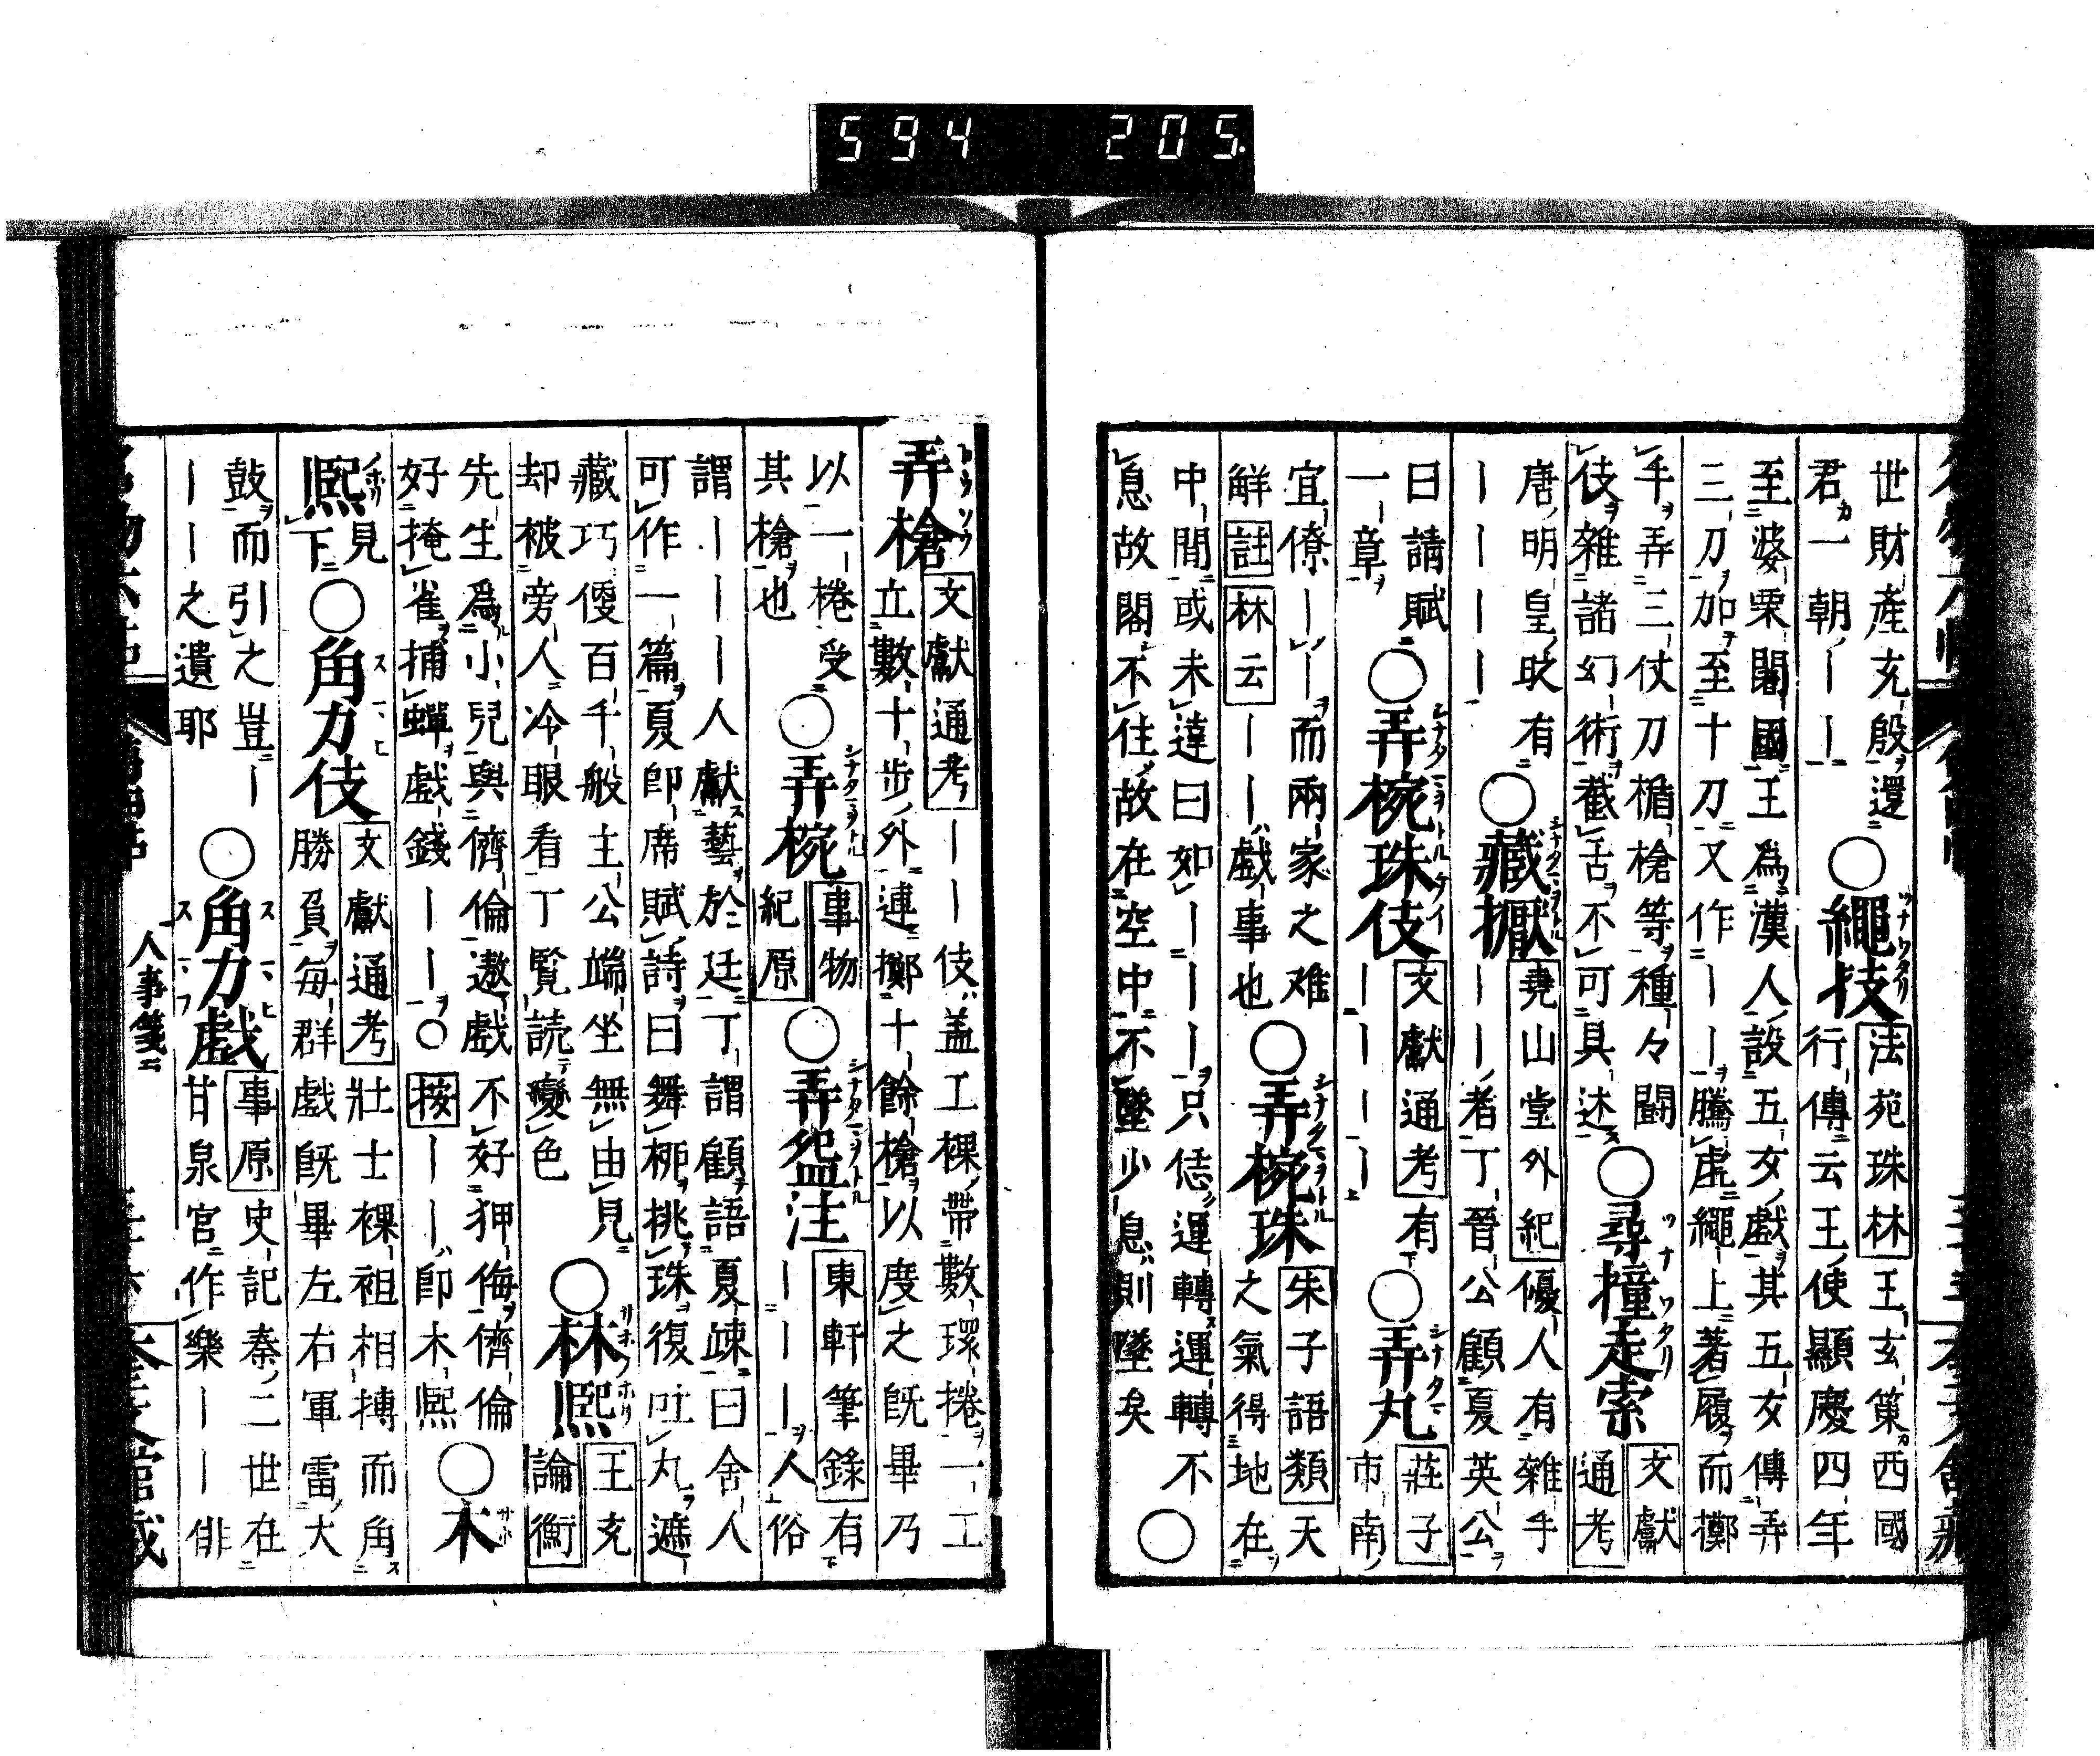 594 205
世財產充殷還
君一朝ーー
○繩技
法苑珠林王玄策西國
行傳云王使顯慶四年
至婆栗闍國王為漢人設五女戲其五女傳弄
三刀加至十刀又作ーー騰虛繩上著履而擲
手弄三仗刀楯槍等種々鬪
伎雜諸幻術截舌不可具述
○尋撞走索
文獻
通考
唐明皇時有
ーーーー
○藏擫
堯山堂外紀優人有雜手
ーーー者丁晉公顧夏英公
曰請賦
一章
○弄椀珠伎
文獻通考有
ーーーー
○弄丸
莊子
市南
宜僚ーー而兩家之难
解註林云ーー戲事也
○弄椀珠
朱子語類天
之氣得地在
中間或未達曰如ーーー只恁運轉運轉不
息故閣不住故在空中不墜少息則墜矣
○
弄槍
トウソウ
文獻通考ーー伎盖工裸帶數環捲一工
立數十步外連擲十餘槍以度之旣畢乃
以一捲受
其槍也
○弄椀
事物
紀原
○弄盌注
東軒筆錄有
ーーー人俗
謂ーーーー人獻藝於廷丁謂顧語夏竦曰舍人
可作一篇夏即席賦詩曰舞柳挑珠復吐丸遮
藏巧便百千般主公端坐無由見
却被旁人冷眼看丁覧読變色
○林熙
王充
論衡
先生為小兒與儕倫遨戲不好狎侮儕倫
好掩雀捕蟬戲錢ーーー○按ーーー即木熙
○木
熙
見
下
○角力伎
文獻通考壯士裸袒相搏而角
勝負每群戲旣畢左右軍雷大
鼓而引之豈ー
ーー之遺耶
○角力戲
事原史記秦二世在
甘泉宮作樂ーー俳
人事箋二